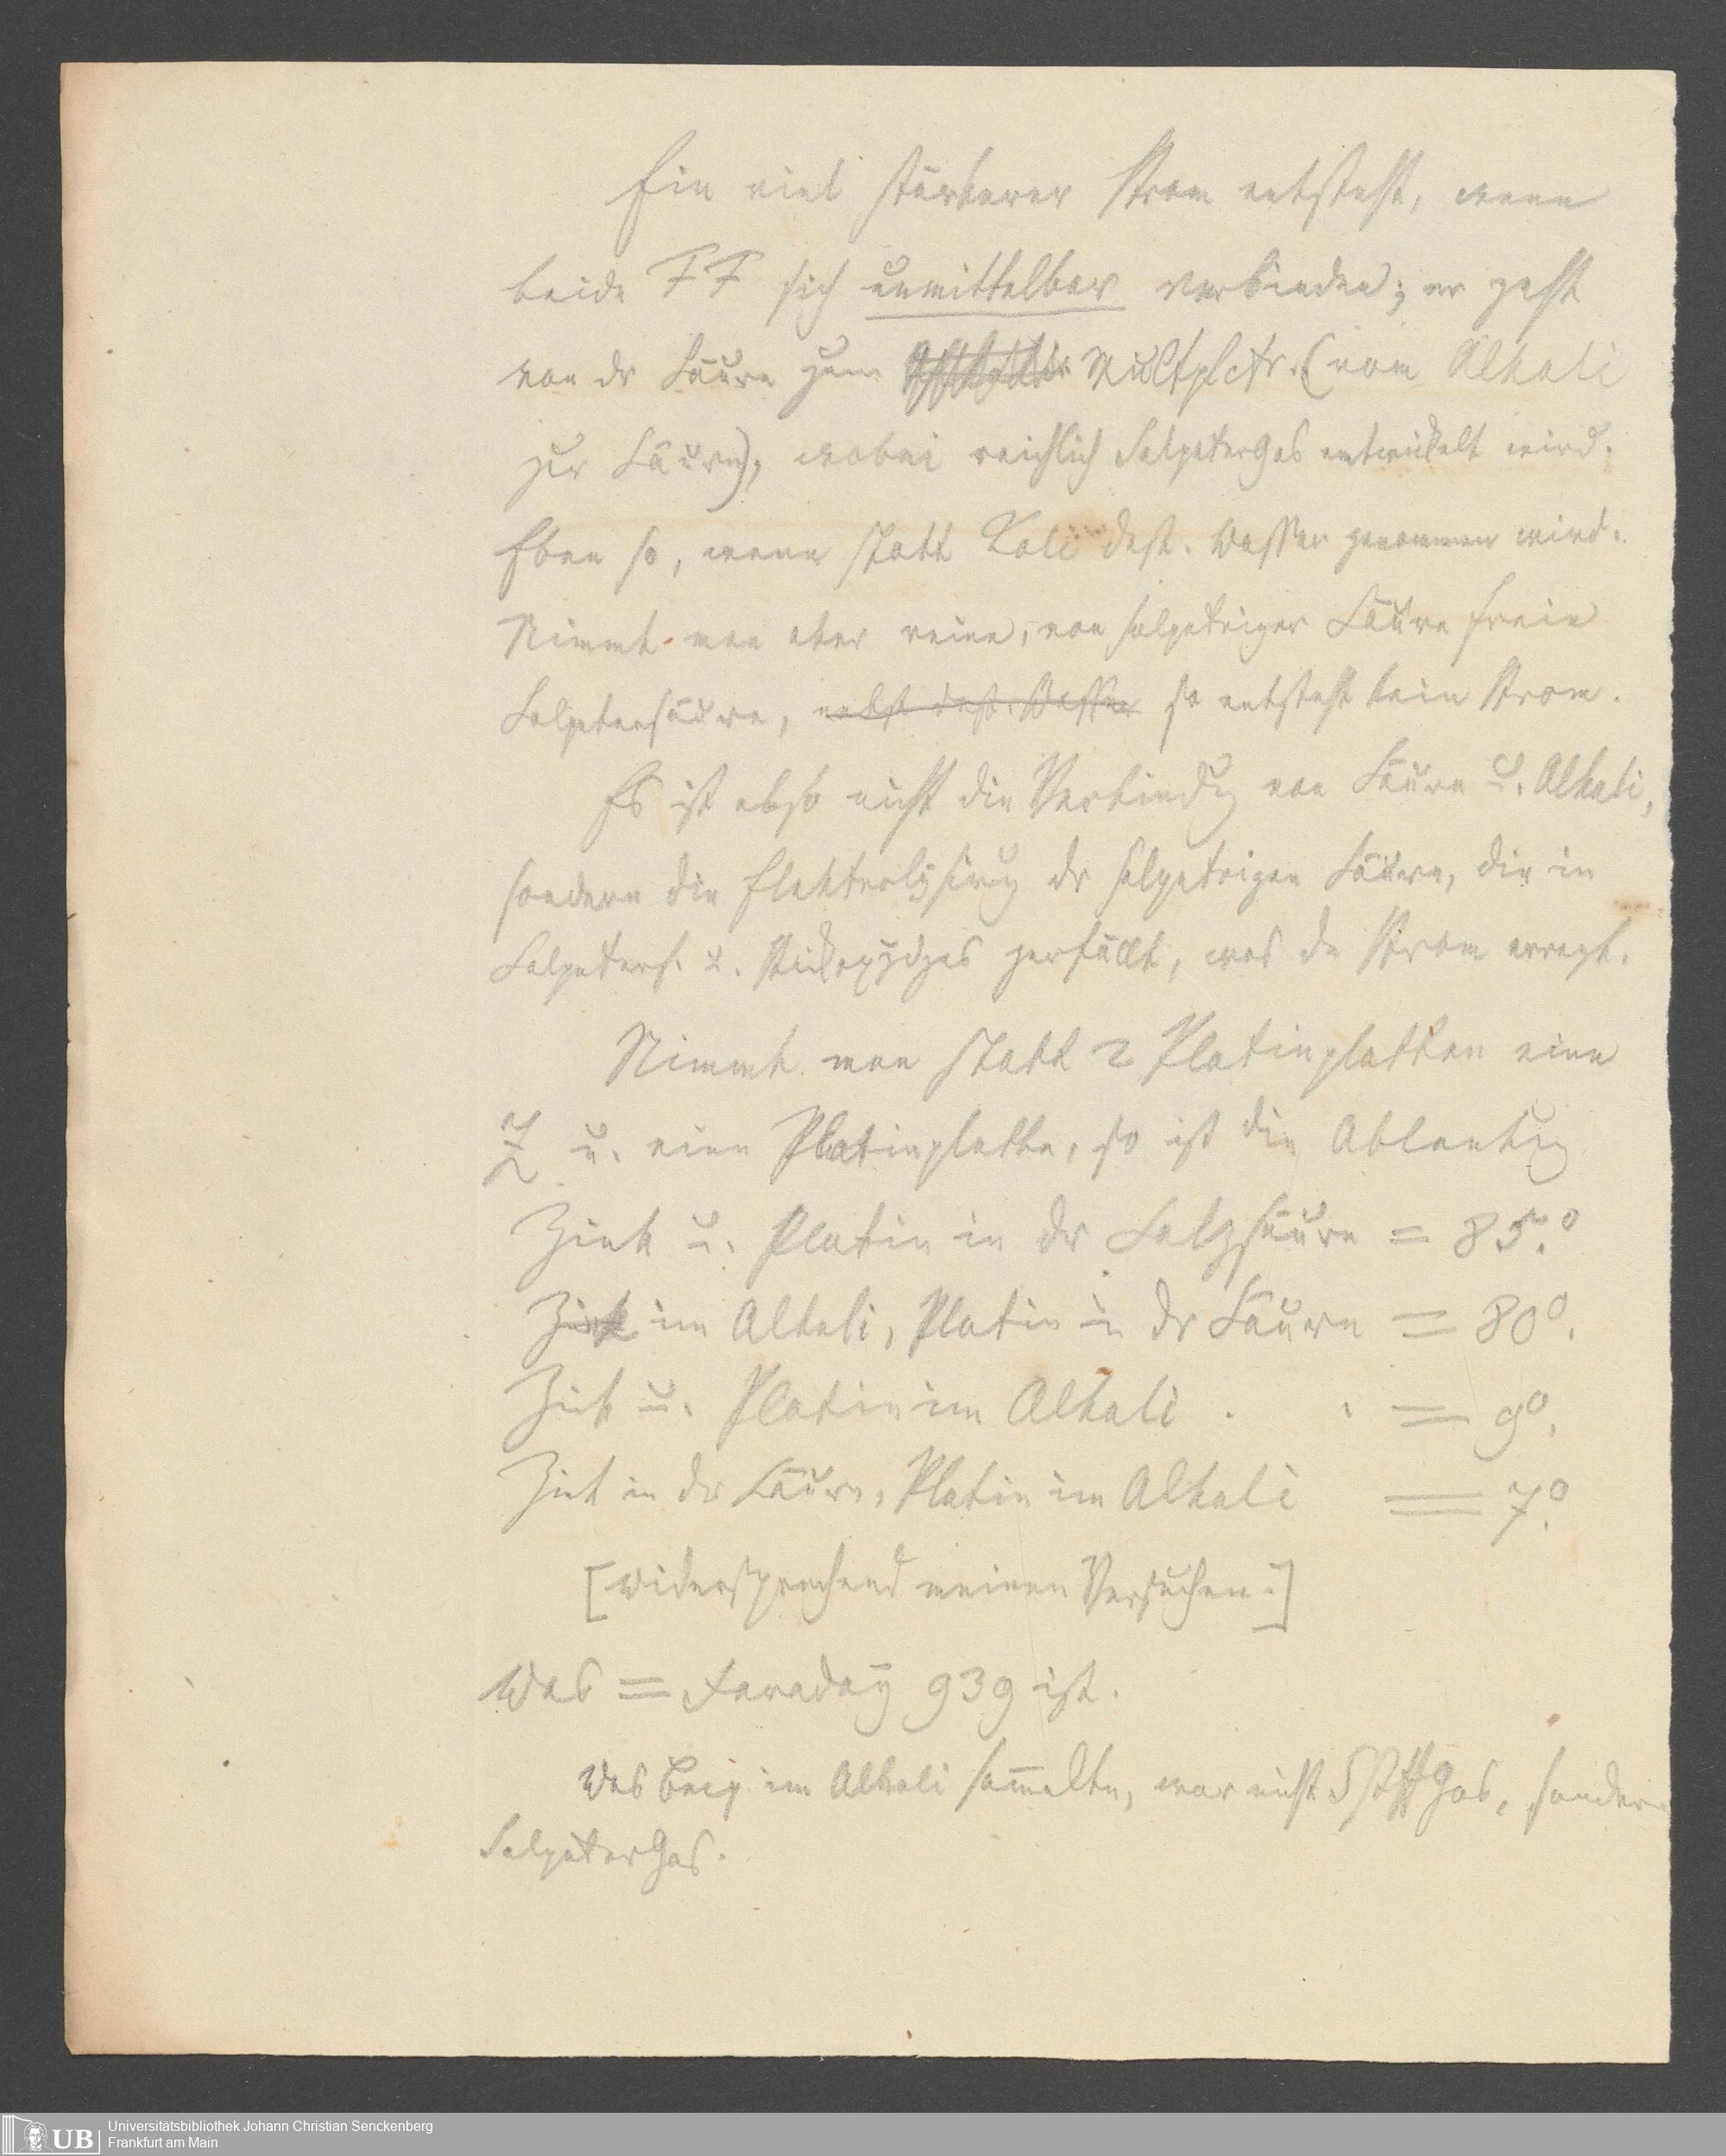 Ein viel stärkerer Strom entsteht, wenn
beide FF sich unmittelbar verbinden; er geht
von dr Säure zum Multplctr. (vom Alkali
zur Säure), wobei reichlich SalpeterGas entwickelt wird.
Eben so, wenn statt Kali dest. Wasser genommen wird.
Nimmt man aber reine, von salpetriger Säure freie
Salpetersäure, nebst dest. Wasser so entsteht kein Strom.
Es ist also nicht die Verbindg von Säure u. Alkali,
sondern die Elektrolysirug dr salpetrigen Säure, die in
Salpeters. u. Stickoxydgas zerfällt, was de Strom erregt.
Nimmt man statt 2 Platinplatten eine
Z u. eine Platinplatte, so ist die Ablenkug
Zink u. Platin in dr Salzsäure = 85.°
Zink im Alkali, Platin in dr Säure = 80°.
Zik u. Platin im Alkali . . = 9°.
Zik in dr Säure, Platin im Alkali = 7.°
[Widersprechend meinen Versuchen.]
Was = Faraday 939 ist.
Was Becq. im Alkali sam̅elte, war nicht SstffGas, sondern
SalpeterGas.
Universitätsbibliothek Johann Christian Senckenberg
Frankfurt am Main
UB